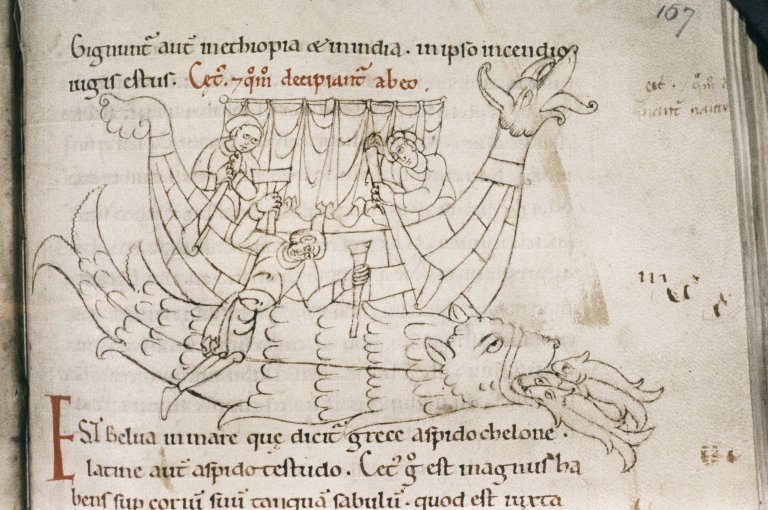 157
Gignunt̄ aut̄ in ethiopia & in india · in ipso incendio
iugis estus · Cet᷒ · ⁊ q̄m̄ decipiant̄ ab eo ·
cet · ⁊ q̄m
EST belua in mare quę dicit̄ grece aspidochelone ·
latine aut̄ aspido testudo · Cet᷒ g̊ est magnus ha
bens sup coriū suū tanquā sabulū · quod est iuxta